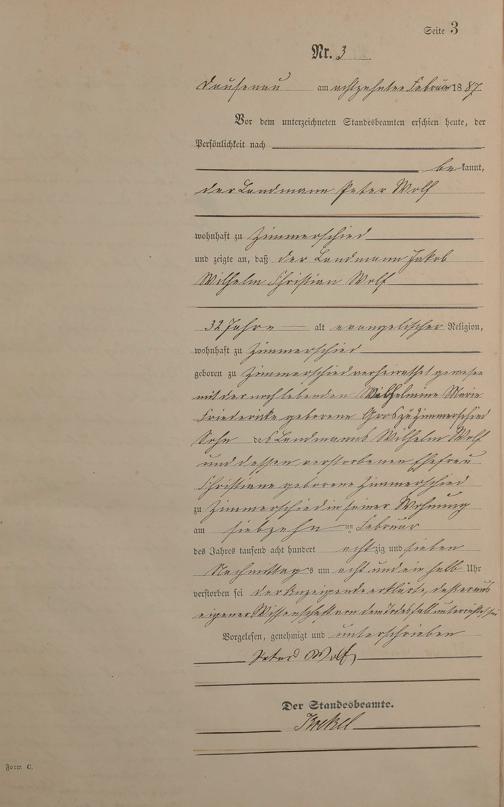 Seite 3
Nr. 3
Dausenau am achtzehnten Februar 1887
Vor dem unterzeichneten Standesbeamten erschien heute, der
Persönlichkeit nach
bekannt,
der Landmann Peter Wolf
wohnhaft zu Zimmerschied
und zeigte an, daß der Landmann Jakob
Wilhelm Christian Wolf
32 Jahre alt evangelischer Religion,
wohnhaft zu Zimmerschied
geboren zu Zimmerschied verheirathet gewesen
mit der noch lebenden Wilhelmine Marie
Friedericke geborene zu Zimmerschied
Sohn des Landmanns Wilhelm Wolf
und dessen verstorbenen Ehefrau
Christiane geborene Zimmerschied
zu Zimmerschied in seiner Wohnung
am siebzehn ten Februar
des Jahres tausend acht hundert achtzig und sieben
Nachmittags um acht und ein halb Uhr
verstorben sei der Anzeigende erklärte, daß er aus
eigener Wissenschaft von dem Todesfall unterrichtet sei
Vorgelesen, genehmigt und unterschrieben
Peter Wolf
Der Standesbeamte.
Form C.